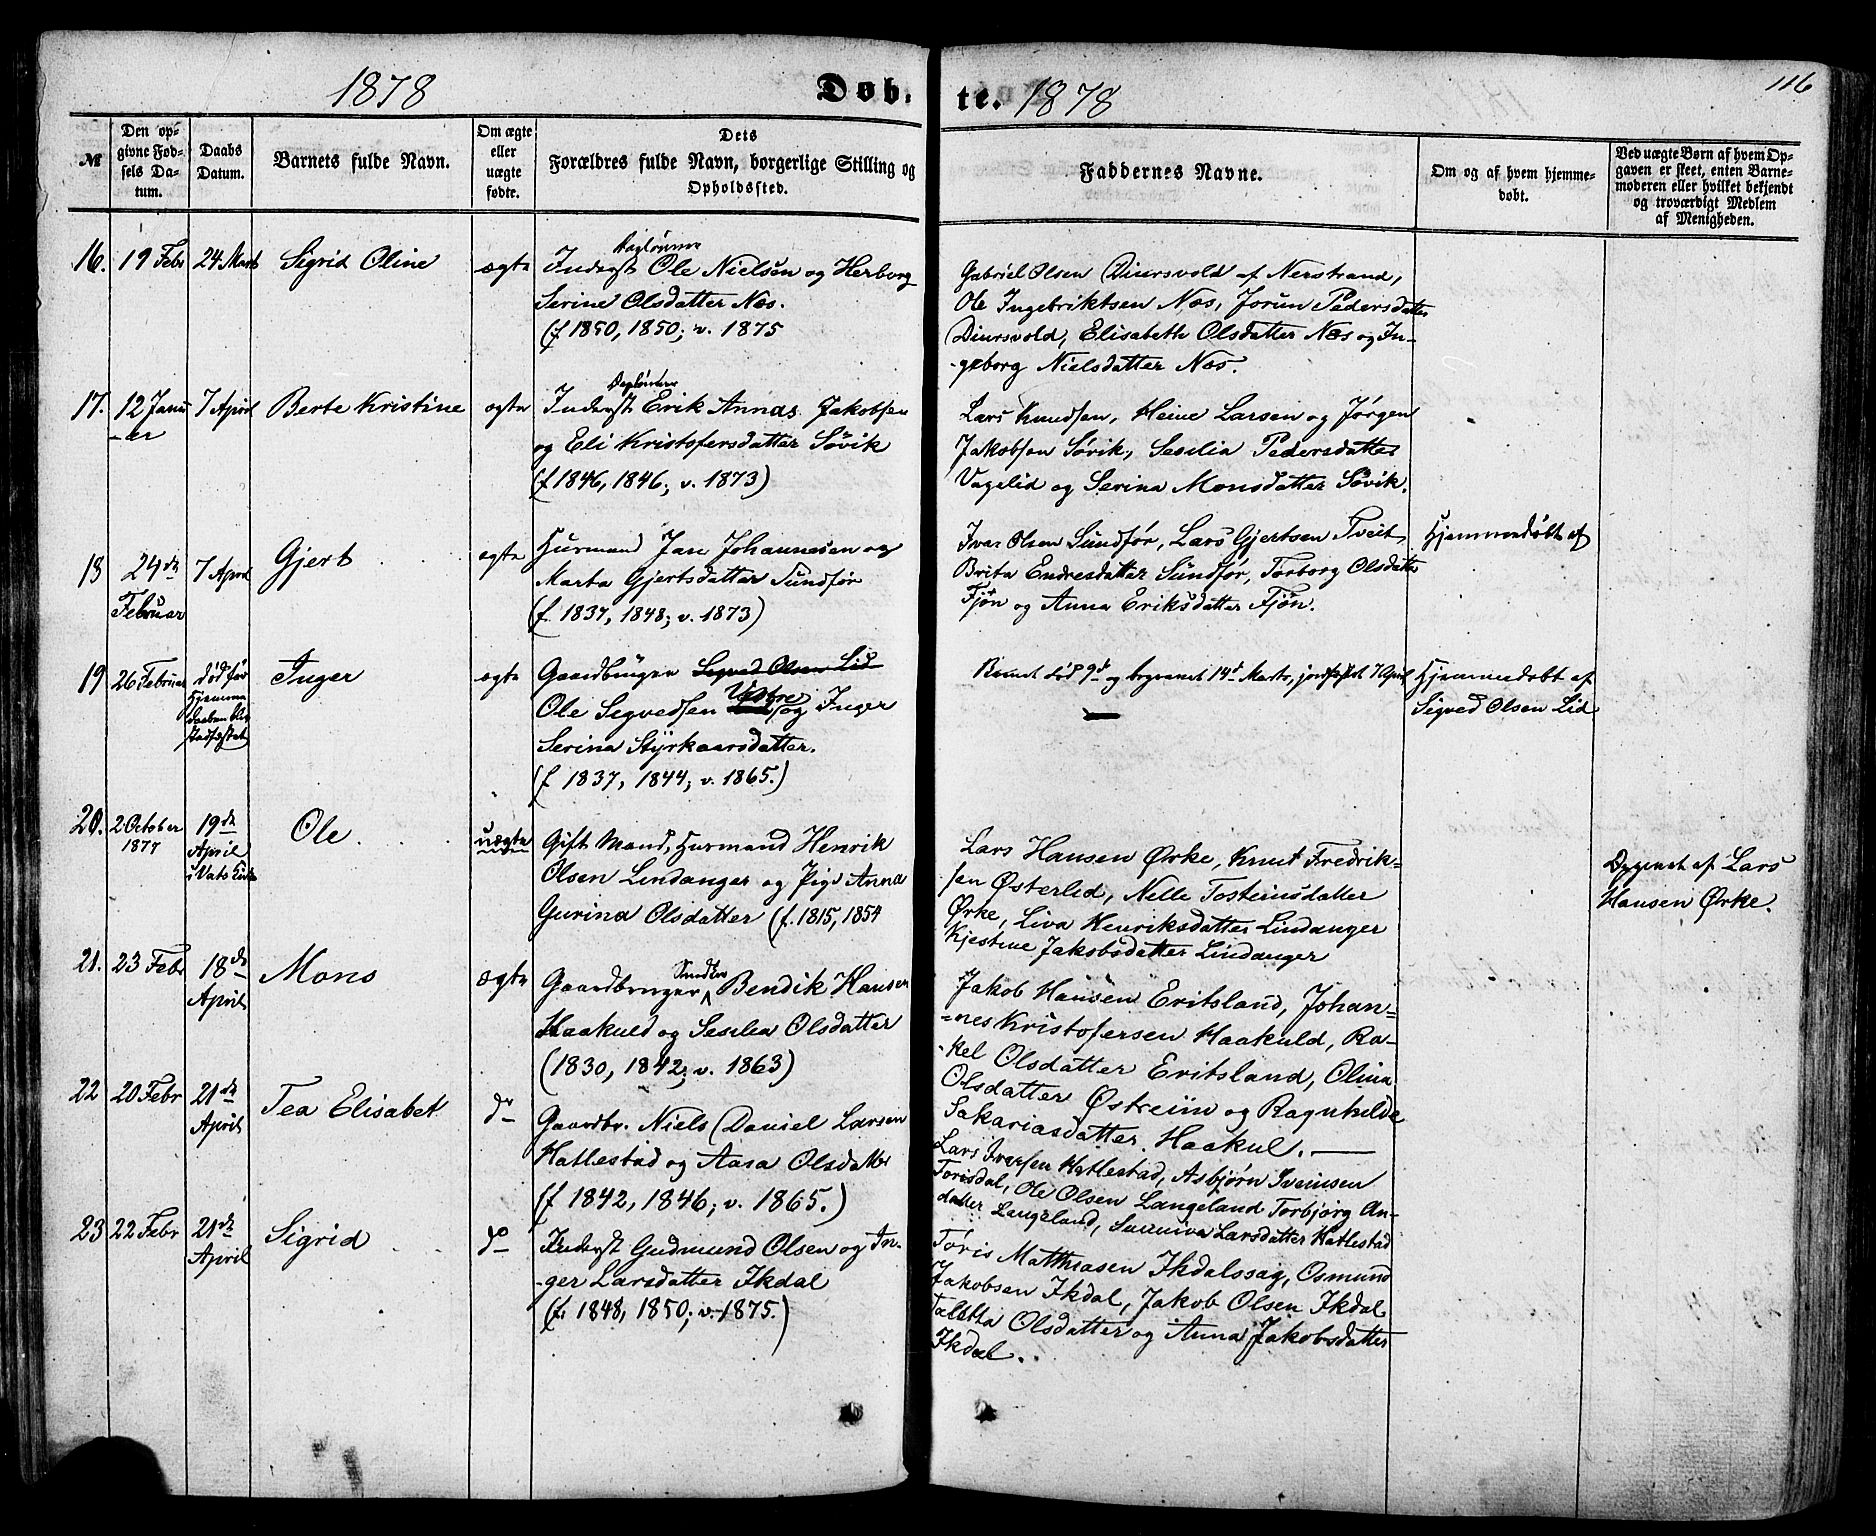 1878
Døb-
te. 1878
116
№
Den op-
givne Fød-
sels Da-
tum.
Daabs
Datum.
Barnets fulde Navn.
Om ægte
eller
uægte
fødte.
Dets
Forældres fulde Navn, borgerlige Stilling og
Opholdssted.
Faddernes Navne.
Om og af hvem hjemme-
døbt.
Ved uægte Børn af hvem Op-
gaven er skeet, enten Barne-
moderen eller hvilket bekjendt
og troværdigt Medlem
af Menigheden.
16. 19 Febr 24 Marts Sigrid Oline ægte
Inderst Ole Nielsen og Herborg
Serine Olsdatter Næs.
(f 1850, 1850; v. 1875
Gabriel Olsen Diursvold af Nerstrand,
Ole Ingebriktsen Næs, Jorun Pedersdatter
Diursvold, Elisabeth Olsdatter Næs og In-
-geborg Nielsdatter Næs.
17. 12 Janu
-ar
7 April Berte Kristine ægte
Inderst Erik Annas Jakobsen
og Eli Kristofersdatter Søvik
(f 1846, 1846; v. 1873)
Lars Knudsen, Heine Larsen og Jørgen
Jakobsen Søvik, Sesilia Pedersdatter
Vagelid og Serina Monsdatter Søvik.
18 24de
Februar
7 April Gjert ægte
Husmand Jan Johannesen og
Marta Gjertsdatter Sundfør
(f. 1837, 1848; v. 1873)
Ivar Olsen Sundfør, Lars Gjertsen Tveit
Brita Endresdatter Sundfør, Torborg Olsdatter
Fjøn og Anna Eriksdatter Fjøn.
Hjemmedøbt af
19 26 Februar
død før
Hjemme
daaben blev
stadfæstet
Inger ægte
Gaardbruger Sigved Olsen Lid
Ole Segvedsen Vestre og Inger
Serina Styrkaarsdatter.
(f 1837, 1844; v. 1865.)
Barnet død 9d og begravet 14d Marts, jordfæstet 7 April
Hjemmedøbt af
Sigved Olsen Lid
20. 2 October
1877
19de
April
i Vats Kirke
Ole. uægte
Gift Mand, Husmand Henrik
Olsen Lindanger og Pige Anna
Gurina Olsdatter (f. 1815, 1854
Lars Hansen Ørke, Knut Fredrik-
sen Østerlid, Nelle Tosteinsdatter
Ørke, Liva Henriksdatter Lindanger
Kjestine Jakobsdatter Lindanger
Opgivet af Lars
Hansen Ørke.
21. 23 Febr 18de
April
Mons ægte
Gaardbruger Bendik Hansen
Haakuld og Sesilia Olsdatter
(1830, 1842; v. 1863)
Jakob Hansen Eritsland, Johan-
-nes Kristofersen Haakuld, Ra-
-kel Olsdatter Eritsland, Olina
Olsdatter Østreiin og Ragnhilde
Sakariasdatter Haakul.
22 20 Febr 21de
April
Tea Elisabet do
Gaardbr. Niels Daniel Larsen
Hatlestad og Aasa Olsdatter
(f 1842, 1846; v. 1865.)
Lars Iversen Hatlestad, Asbjørn Iveinsen
Torisdal, Ole Olsen Langeland Torbjørg An-
datter Langeland, Sunniva Larsdatter Hatlestad
23 22 Febr 21de
April
Sigrid do
Inderst Gudmund Olsen og In-
-ger Larsdatter Ikdal
(f. 1848, 1850; v. 1875.)
Tøris Matthiasen Ikdalssag, Osmund
Jakobsen Ikdal, Jakob Olsen Ikdal
Taletha Olsdatter og Anna Jakobsdatter
Ikdal.